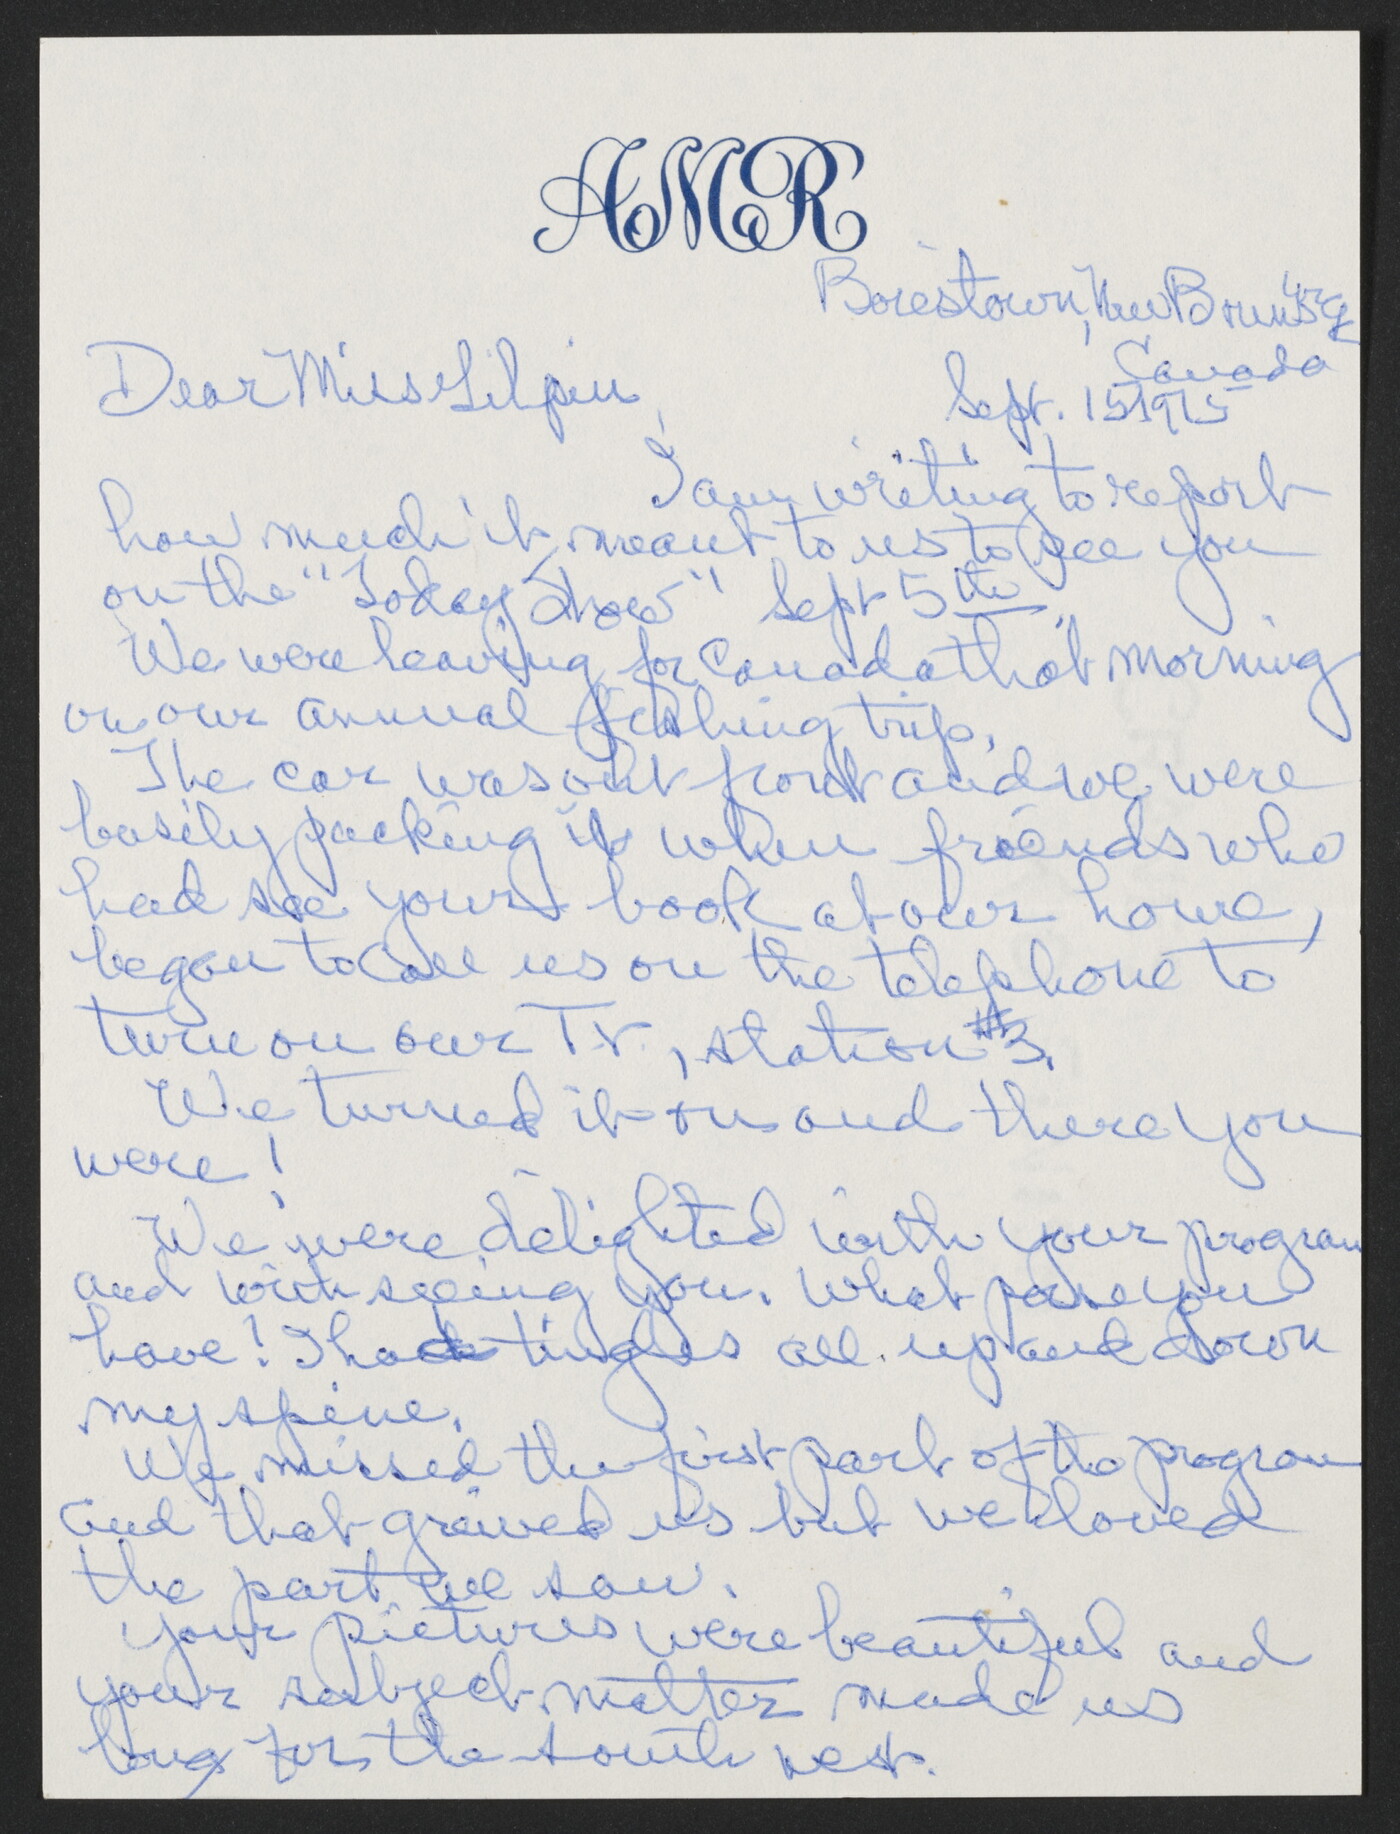 AMR
Boiestown, New Brunswick
Canada
Dear Miss Gilpin,
Sept. 15 1975
I am writing to report
how much it meant to us to see you
on the "Today Show" Sept 5th.
We were leaving for Canada that morning
on our annual fishing trip.
The car was out front and we were
busily packing it when friends who
had see your book at our home,
began to call us on the telephone to
turn on our T.V., station #3.
We turned it on and there you
were!
We were delighted with your program
and with seeing you. What poise you
have! I had tingles all up and down
my spine.
We missed the first part of the program
and that grieved us but we loved
the part we saw.
Your pictures were beautiful and
your subject matter made us
long for the south west.